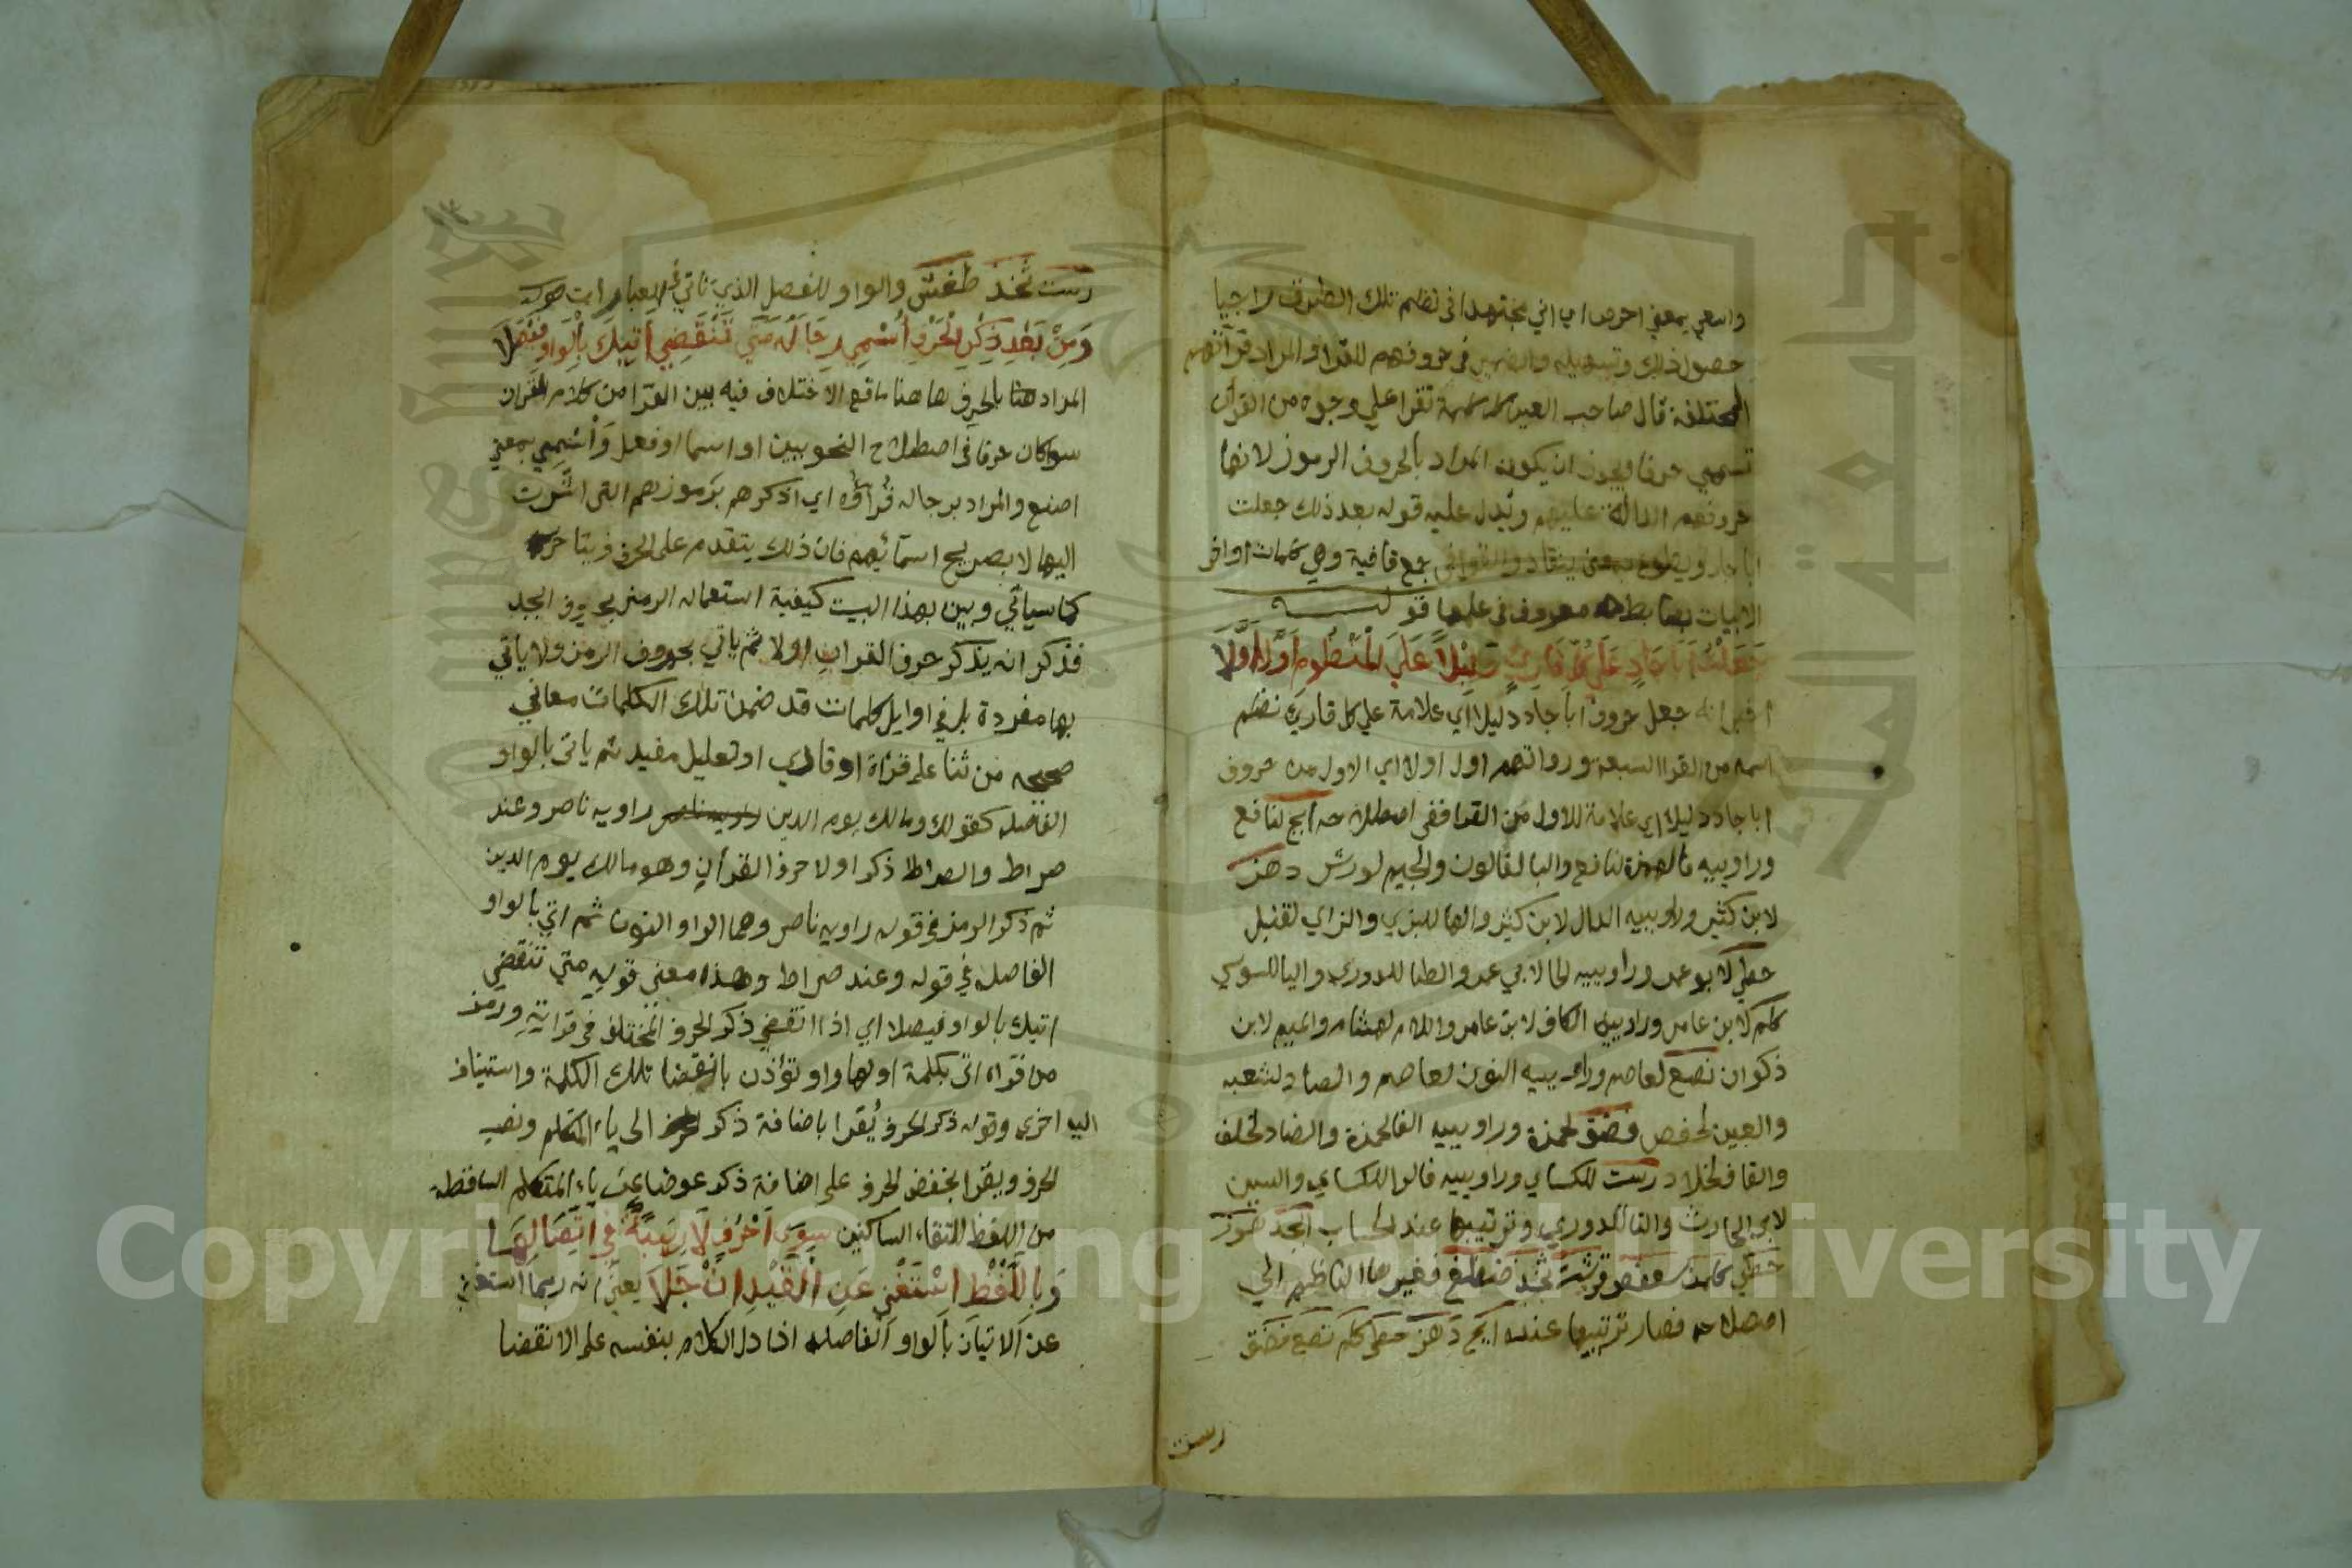 واسعي بمعني احرص اي اني مجتهد في نظم تلك الطرق راجيا
حصول ذلك وتسهيله والضمير في حروفهم للقرا والمراد قرآتهم
المختلفة قال صاحب العين كل كلمة تقرا علي وجوه من القرآن
تسمي حرفا ويجوز ان يكون المراد بالحروف الرموز لانها
حروفهم الدالة عليهم ويدل عليه قوله بعد ذلك جعلت
ابا جاد ويطوع بمعني ينقاد والقوافي جمع قافية وهي كلمات اواخر
الابيات بضابط معروف في علمها قولــه
جَعَلْتُ اَبَا جَادٍ عَلَي كُلِّ قَارِئٍ دَلِيْلاً عَلَي الْمَنْظُومِ اَوَّلَ اَوَّلَا
اخبر انه جعل حروف ابا جاد دليلا اي علامة علي كل قارئ نظم
اسمه من القرا السبعة ورواتهم اول اولا اي الاول من حروف
ابا جاد دليلا اي علامة للاول من القرا ففي اصطلاحه ابج لنافع
وراوييه فالهمزة لنافع والبا لقالون والجيم لورش دهز
لابن كثير وراوييه الدال لابن كثير والها للبزي والزاي لقنبل
حطي لابو عمر وراوييه الحا لابي عمر والطا للدوري واليا للسوسي
كلم لابن عامر وراوييه الكاف لابن عامر واللام لهشام والميم لابن
ذكوان نصع لعاصم وراوييه النون لعاصم والصاد لشعبه
والعين لحفص فضق لحمزة وراوييه الفا لحمزة والضاد لخلف
والقاف لخلاد رست للكساي وراوييه فالرا للكساي والسين
لابي الحارث والتا للدوري وترتيبها عند الحساب ابجد هوز
حطي كلمن سعفص قرشت ثخذ ضظغ فغيرها الناظم الي
اصطلاحه فصار ترتيبها عنده ابج دهز حطي كلم نصع فضق
رست
رست ثخذ ظغش والواو للفصل الذي تاتي في العبارات
وَمِنْ بَعْدِ ذِكْرِي الْحَرْفَ اُسْمِي رِجَالَهُ مَتَي تَنْقَضِي اٰتِيكَ بِالْوَاوِ فَيْصَلَا
المراد هنا بالحرف هاهنا ما قع الاختلاف فيه بين القرا من كلام القران
سوا كان حرفا في اصطلاح النحويين او اسما او فعل وَاُسْمِي بمعني
اصنع والمراد برجاله قُرآؤه اي اذكرهم برموزهم التي اشرت
اليها لا بصريح اسمآئهم فان ذلك يتقدم علي الحرف ويتاخر
كما سياتي وبين بهذا البيت كيفية استعماله الرمز بحروف ابجد
فذكر انه يذكر حرف القران اولا ثم ياتي بحروف الرمز ولا ياتي
بها مفردة بل في اوايل كلمات قد ضمن تلك الكلمات معاني
صحيحه من ثنا علي قراة او قاري او تعليل مفيد ثم ياتي بالواو
الفاصله كقولك ومالك يوم الدين راويه ناصر راويه ناصر وعند
صراط والصراط ذكر اولا حرف القرآن وهو مالك يوم الدين
ثم ذكر الرمز في قوله راويه ناصر وهما الرا والنون ثم اتي بالواو
الفاصله في قوله وعند صراط وهذا معني قوله متي تنقضي
اتيك بالواو فيصلا اي اذا انقضي ذكر الحرف المختلف في قرآيته ورمز
من قراه اتي بكلمة اولها واو تؤذن بانقضا تلك الكلمة واستيناف
اخري وقوله ذكر الحرف يُقرا باضافة ذكر الي ياء المتكلم ونصب
الحرف ويقرا بخفض الحرف علي اضافة ذكر عوضا عن ياء المتكلم الساقطة
من اللفظ لالتقاء الساكنين سِوَي اَحْرُفٍ لَا رِيْبَةٌ فِي اتِّصَالِهَا
وَبِاللَّفْظِ اسْتَغْنِي عَنِ الْقَيْدِ اِنْ جَلَا يعني انه ربما استغني
عن الاتيان بالواو الفاصله اذا دل الكلام بنفسه علي الانقضا
Copyright © King Saud University
جامعة الملك سعود
1957